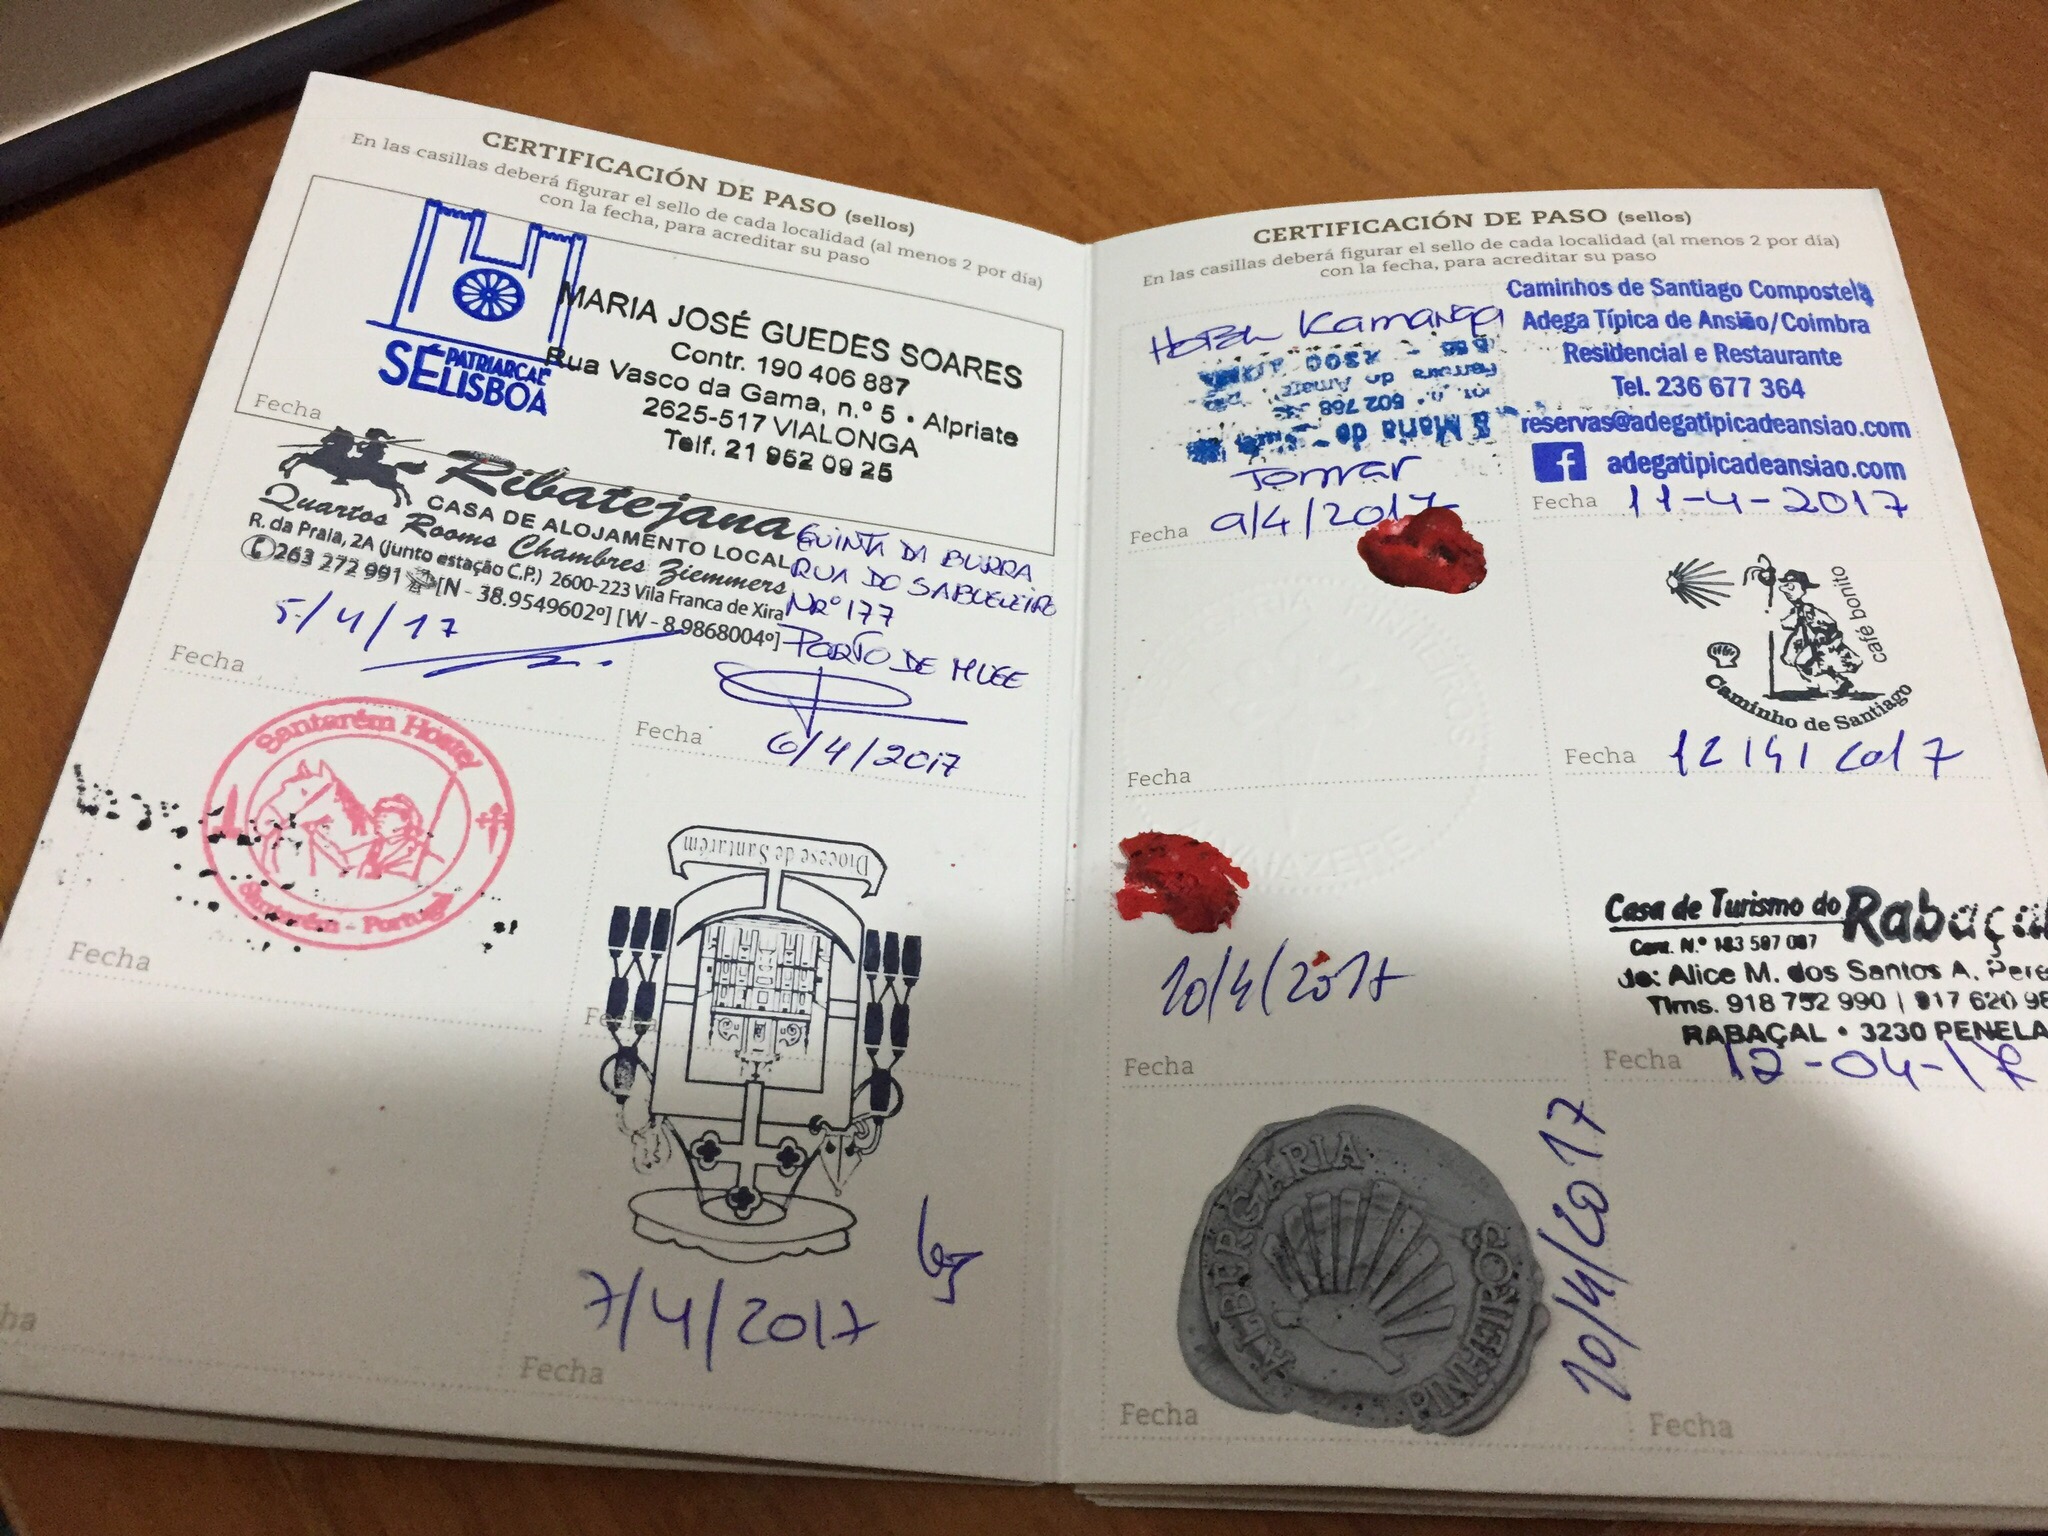 CERTIFICACIÓN DE PASO (sellos)
En las casillas deberá figurar el sello de cada localidad (al menos 2 por día)
con la fecha, para acreditar su paso
SÉ PATRIARCAL
LISBOA
MARIA JOSÉ GUEDES SOARES
Contr. 190 406 887
Rua Vasco da Gama, n.º 5 • Alpriate
2625-517 VIALONGA
Telf. 21 952 09 25
Fecha
Ribatejana
CASA DE ALOJAMENTO LOCAL
Quartos Rooms Chambres Ziemmers
R. da Praia, 2A (junto estação C.P.) 2600-223 Vila Franca de Xira
263 272 991 [N - 38.9549602º] [W - 8.9868004º]
5/4/17
Fecha
QUINTA DA BURRA
RUA DO
NRº 177
PORTO DE
Fecha
6/4/2017
Santarém Hostel
Santarém - Portugal
Fecha
Diocese de Santarém
Fecha
7/4/2017
Fecha
ha
CERTIFICACIÓN DE PASO (sellos)
En las casillas deberá figurar el sello de cada localidad (al menos 2 por día)
con la fecha, para acreditar su paso
HOTEL Kamanga
S. Maria do
502 768
Ferreira do
2300
Tomar
Fecha 9/4/2017
Caminhos de Santiago Compostela
Adega Típica de Ansião/Coimbra
Residencial e Restaurante
Tel. 236 677 364
reservas@adegatipicadeansiao.com
adegatipicadeansiao.com
Fecha 11-4-2017
Fecha
café bonito
Caminho de Santiago
Fecha 12/4/2017
10/4/2017
Fecha
Casa de Turismo do Rabaçal
Cont. N.º 183 597 087
de: Alice M. dos Santos A. Pere
Tlms. 918 752 990 | 917 620 98
RABAÇAL • 3230 PENELA
Fecha 12-04-17
ALBERGARIA
PINHEIRÓS
10/4/2017
Fecha
Fecha